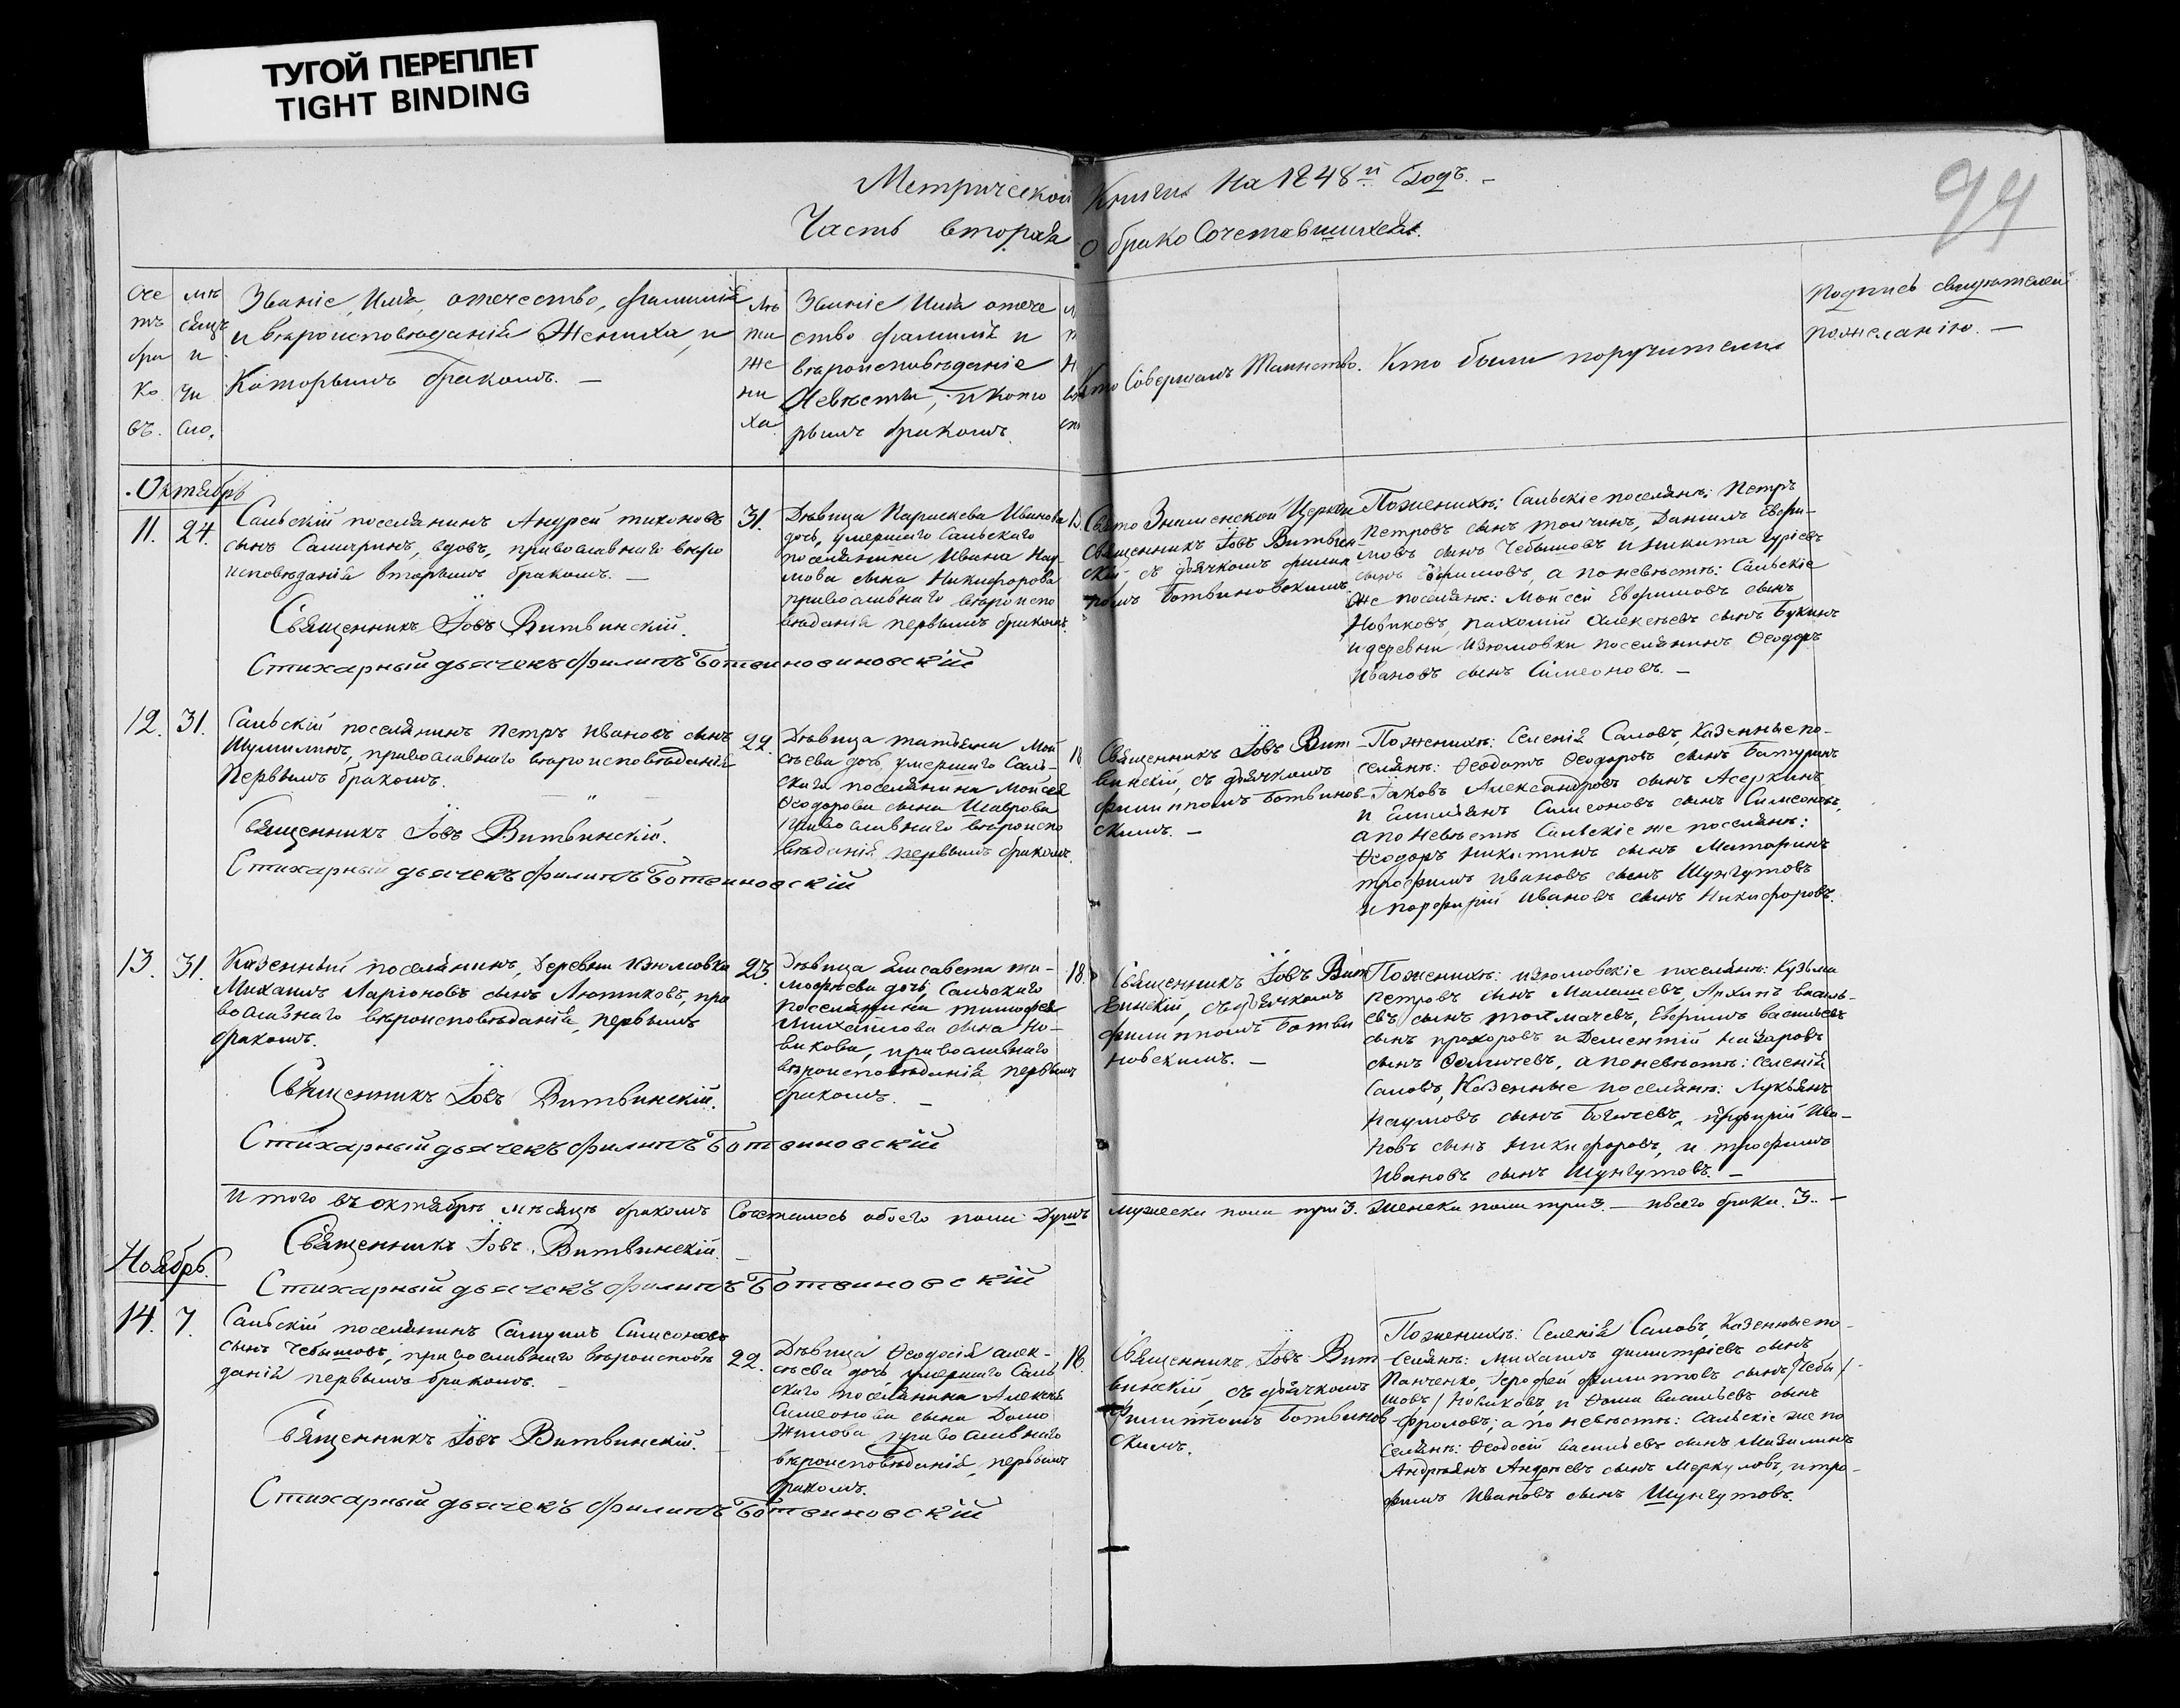 ТУГОЙ ПЕРЕПЛЕТ
TIGHT BINDING
94
Метрической Книги На 1848й Годъ. -
Часть вторая о бракосочетавшихся.
Сче
тъ
бра
ко
въ.
мѣ
сяцъ
и
чи
сло.
Званіе, Имя, отечество, фамилія
и вѣроисповѣданія Жениха, и
Которымъ бракомъ. -
Лѣ
та
же
ни
ха
Званіе Имя отече
ство фамилія и
вѣроисповѣданіе
Невѣсты, и кото
рымъ бракомъ.
Кто Совершалъ Таинство.
Кто были поручители
Подпись свидѣтелей
по желанію. -
Октябрь
11. 24.
Сальскій поселянинъ Андрей тихоновъ
сынъ Самаринъ, вдовъ, православнаго вѣро
исповѣданія вторымъ бракомъ. -
Священникъ Іовъ Витвинскій.
Стихарный дьячекъ Филипъ Ботвиновиновскій
31.
Дѣвица Параскева Иванова
дочь, умершаго Сальскаго
поселянина Ивана Нау-
мова сына Никифорова
православнаго вѣроиспо
вѣданія первымъ бракомъ.
Свято Знаменской Церкви
Священникъ Іовъ Витвин-
скій, съ дьячкомъ филип
помъ Ботвиновскимъ.
По женихѣ: Сальскіе поселянѣ: Петръ
Петровъ сынъ толчинъ, Даніилъ Евфи-
мовъ сынъ Чебышовъ и никита гуріевъ
сынъ Ефимовъ, а по невѣстѣ: Сальскіе
же поселянѣ: Мойсей Евфимовъ сынъ
Новиковъ, пахомій Алексѣевъ сынъ Букинъ
и деревни Изюмовки поселянинъ Ѳеодоръ
Ивановъ сынъ Симеоновъ. -
12. 31.
Сальскій поселянинъ Петръ Ивановъ сынъ
Шумилинъ, православнаго вѣроисповѣданія
Первымъ бракомъ.
Священникъ Іовъ Витвинскій.
Стихарный дьячекъ Филипъ Ботвиновскій
22.
Дѣвица татьяна Мой
сѣева дочь, умершаго Саль-
скаго поселянина Мойсея
Ѳеодорова сына Шаврова
православнаго вѣроиспо
вѣданія первымъ бракомъ.
18
Священникъ Іовъ Вит-
винскій, съ дьячкомъ
филиппомъ Ботвинов-
скимъ. -
По женихѣ: Селенія Саловъ, Казенные по-
селянѣ: Ѳеодотъ Ѳеодоровъ сынъ Батуринъ
Іаковъ Александровъ сынъ Асеркинъ
и Симеоновъ сынъ Симеоновъ,
а по Невѣстѣ Сальскіе же поселянѣ:
Ѳеодоръ никитинъ сынъ Матаринъ
трофимъ Ивановъ сынъ Шунгутовъ
и порфирій Ивановъ сынъ Никифоровъ.
13. 31.
Казенный поселянинъ, Деревни Изюмовки
Михаилъ Ларіоновъ сынъ Лютиковъ, пра
вославнаго вѣроисповѣданія, первымъ
бракомъ.
Священникъ Іовъ Витвинскій.
Стихарный дьячекъ Филипъ Ботвиновскій
23.
Дѣвица Елисавета ти-
мофѣева дочь, Сальскаго
поселянина тимофея
Михайлова сына Но-
викова, православнаго
вѣроисповѣданія первымъ
бракомъ. -
18.
Священникъ Іовъ Вит
винскій, съ дьячкомъ
филиппомъ Ботви
новскимъ. -
По женихѣ: изюмовскіе поселянѣ: Кузьма
Петровъ сынъ Малашевъ, Архипъ василь-
евъ сынъ толмачевъ, Евфимъ васильевъ
сынъ прохоровъ и Дементій назаровъ
сынъ а по невѣстѣ: Селенія
Саловъ, Казенные поселянѣ: Лукьянъ
Наумовъ сынъ Богачевъ, порфирій Ива-
новъ сынъ никифоровъ, и трофимъ
Ивановъ сынъ Шунгутовъ. -
Итого въ октябрѣ мѣсяцѣ бракомъ Сочеталось обоего пола Душъ мужеска пола три 3. женска пола три 3. - всего брака. 3.. -
Священникъ Іовъ Витвинскій. -
Стихарный дьячекъ Филипъ Ботвиновскій
Ноябрь.
14. 7.
Сальскій поселянинъ Самуилъ Симеоновъ
сынъ Чебышовъ, православнаго вѣроисповѣ
данія первымъ бракомъ. -
Священникъ Іовъ Витвинскій. -
Стихарный дьячекъ Филипъ Ботвиновскій
22.
Дѣвица Ѳеодосія алек-
сѣева дочь, умершаго Саль
скаго поселянина Алексѣя
Симеонова сына Домо
жилова православнаго
вѣроисповѣданія, первымъ
бракомъ.
18.
Священникъ Іовъ Вит
винскій, съ дьячкомъ
Филиппомъ Ботвинов
скимъ.
По женихѣ: Селенія Саловъ, Казенные по-
селянѣ: Михаилъ димитріевъ сынъ
Панченко, Іерофей Филиповъ сынъ /Чебы/
шовъ/ Новиковъ, и Ѳома васильевъ сынъ
Фроловъ; а по невѣстѣ: Сальскіе же по
селянѣ: Ѳеодосій васильевъ сынъ Мазилинъ
Андреянъ Андреевъ сынъ Меркуловъ, и тро-
фимъ Ивановъ сынъ Шунгутовъ.